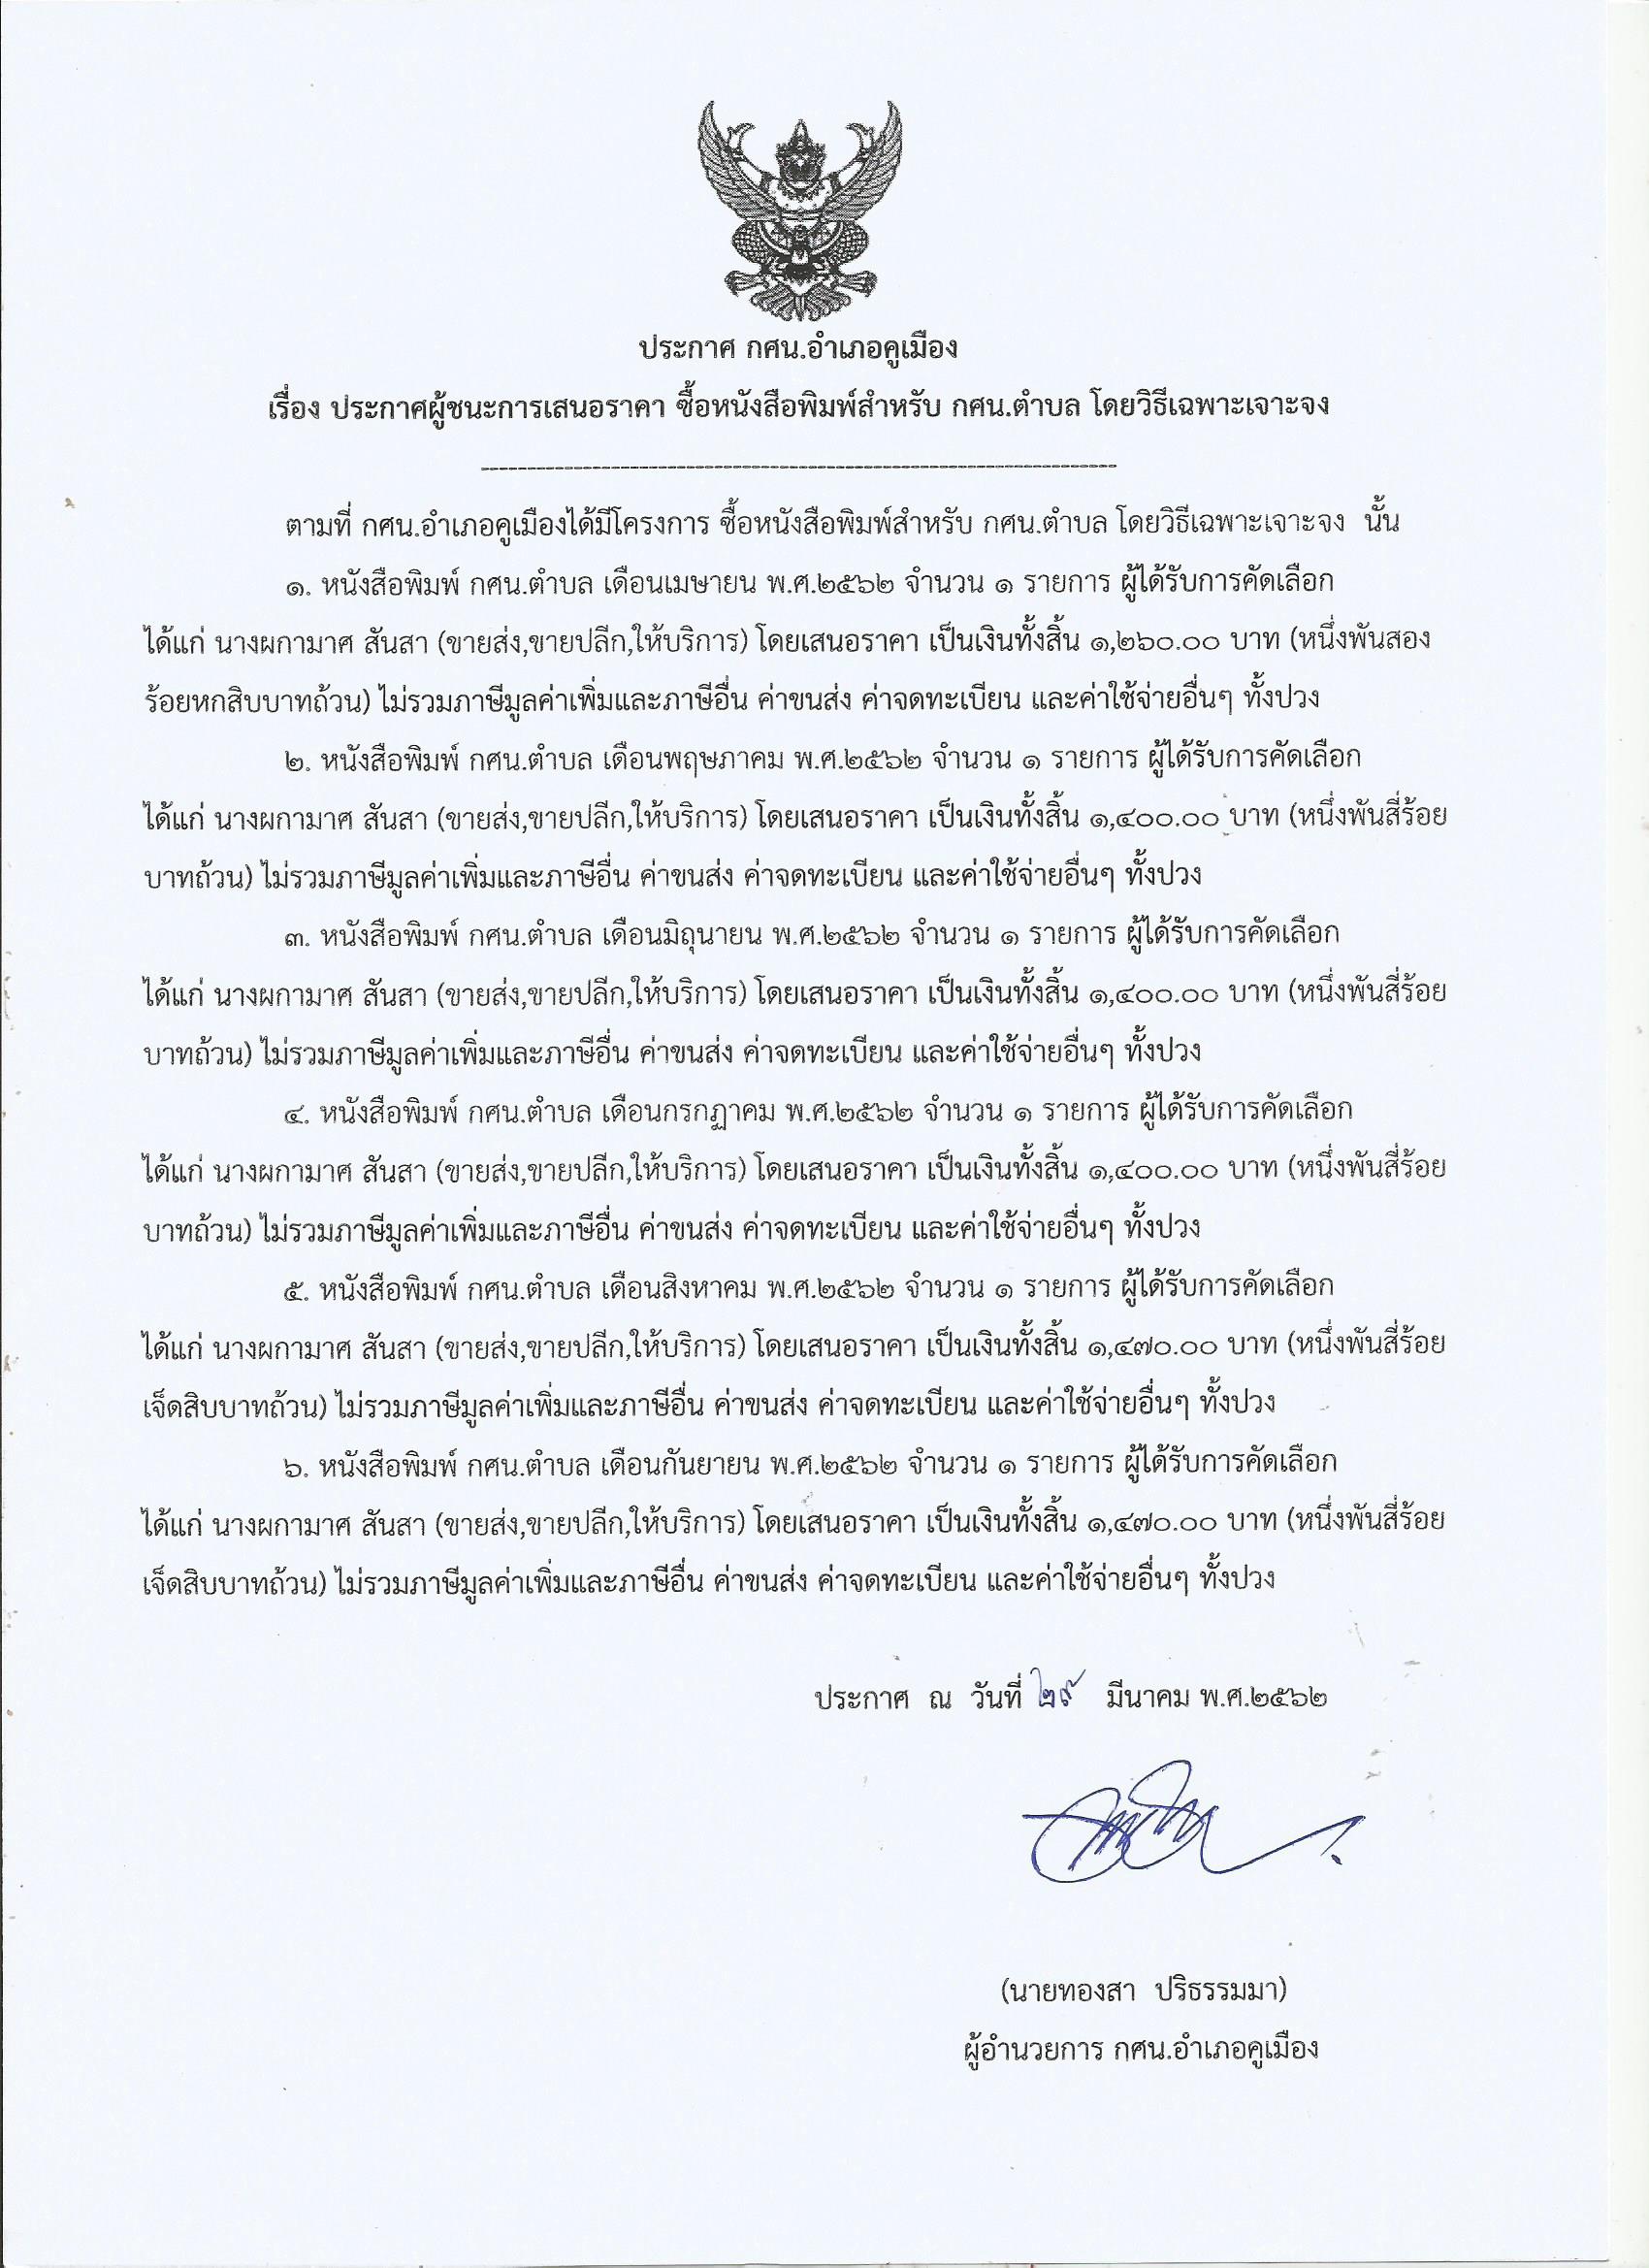 ประกาศ กศน.อำเภอคูเมือง
เรื่อง ประกาศผู้ชนะการเสนอราคา ซื้อหนังสือพิมพ์สำหรับ กศน.ตำบล โดยวิธีเฉพาะเจาะจง
--------------------------------------------------------------------
ตามที่ กศน.อำเภอคูเมืองได้มีโครงการ ซื้อหนังสือพิมพ์สำหรับ กศน.ตำบล โดยวิธีเฉพาะเจาะจง นั้น
๑. หนังสือพิมพ์ กศน.ตำบล เดือนเมษายน พ.ศ.๒๕๖๒ จำนวน ๑ รายการ ผู้ได้รับการคัดเลือก
ได้แก่ นางผกามาศ สันสา (ขายส่ง,ขายปลีก,ให้บริการ) โดยเสนอราคา เป็นเงินทั้งสิ้น ๑,๒๖๐.๐๐ บาท (หนึ่งพันสอง
ร้อยหกสิบบาทถ้วน) ไม่รวมภาษีมูลค่าเพิ่มและภาษีอื่น ค่าขนส่ง ค่าจดทะเบียน และค่าใช้จ่ายอื่นๆ ทั้งปวง
๒. หนังสือพิมพ์ กศน.ตำบล เดือนพฤษภาคม พ.ศ.๒๕๖๒ จำนวน ๑ รายการ ผู้ได้รับการคัดเลือก
ได้แก่ นางผกามาศ สันสา (ขายส่ง,ขายปลีก,ให้บริการ) โดยเสนอราคา เป็นเงินทั้งสิ้น ๑,๔๐๐.๐๐ บาท (หนึ่งพันสี่ร้อย
บาทถ้วน) ไม่รวมภาษีมูลค่าเพิ่มและภาษีอื่น ค่าขนส่ง ค่าจดทะเบียน และค่าใช้จ่ายอื่นๆ ทั้งปวง
๓. หนังสือพิมพ์ กศน.ตำบล เดือนมิถุนายน พ.ศ.๒๕๖๒ จำนวน ๑ รายการ ผู้ได้รับการคัดเลือก
ได้แก่ นางผกามาศ สันสา (ขายส่ง,ขายปลีก,ให้บริการ) โดยเสนอราคา เป็นเงินทั้งสิ้น ๑,๔๐๐.๐๐ บาท (หนึ่งพันสี่ร้อย
บาทถ้วน) ไม่รวมภาษีมูลค่าเพิ่มและภาษีอื่น ค่าขนส่ง ค่าจดทะเบียน และค่าใช้จ่ายอื่นๆ ทั้งปวง
๔. หนังสือพิมพ์ กศน.ตำบล เดือนกรกฏาคม พ.ศ.๒๕๖๒ จำนวน ๑ รายการ ผู้ได้รับการคัดเลือก
ได้แก่ นางผกามาศ สันสา (ขายส่ง,ขายปลีก,ให้บริการ) โดยเสนอราคา เป็นเงินทั้งสิ้น ๑,๔๐๐.๐๐ บาท (หนึ่งพันสี่ร้อย
บาทถ้วน) ไม่รวมภาษีมูลค่าเพิ่มและภาษีอื่น ค่าขนส่ง ค่าจดทะเบียน และค่าใช้จ่ายอื่นๆ ทั้งปวง
๕. หนังสือพิมพ์ กศน.ตำบล เดือนสิงหาคม พ.ศ.๒๕๖๒ จำนวน ๑ รายการ ผู้ได้รับการคัดเลือก
ได้แก่ นางผกามาศ สันสา (ขายส่ง,ขายปลีก,ให้บริการ) โดยเสนอราคา เป็นเงินทั้งสิ้น ๑,๔๗๐.๐๐ บาท (หนึ่งพันสี่ร้อย
เจ็ดสิบบาทถ้วน) ไม่รวมภาษีมูลค่าเพิ่มและภาษีอื่น ค่าขนส่ง ค่าจดทะเบียน และค่าใช้จ่ายอื่นๆ ทั้งปวง
๖. หนังสือพิมพ์ กศน.ตำบล เดือนกันยายน พ.ศ.๒๕๖๒ จำนวน ๑ รายการ ผู้ได้รับการคัดเลือก
ได้แก่ นางผกามาศ สันสา (ขายส่ง,ขายปลีก,ให้บริการ) โดยเสนอราคา เป็นเงินทั้งสิ้น ๑,๔๗๐.๐๐ บาท (หนึ่งพันสี่ร้อย
เจ็ดสิบบาทถ้วน) ไม่รวมภาษีมูลค่าเพิ่มและภาษีอื่น ค่าขนส่ง ค่าจดทะเบียน และค่าใช้จ่ายอื่นๆ ทั้งปวง
ประกาศ ณ วันที่ ๒๙ มีนาคม พ.ศ.๒๕๖๒
(นายทองสา ปริธรรมมา)
ผู้อำนวยการ กศน.อำเภอคูเมือง